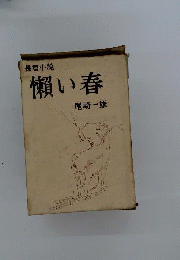 長篇小説
懶い春
尾崎一雄